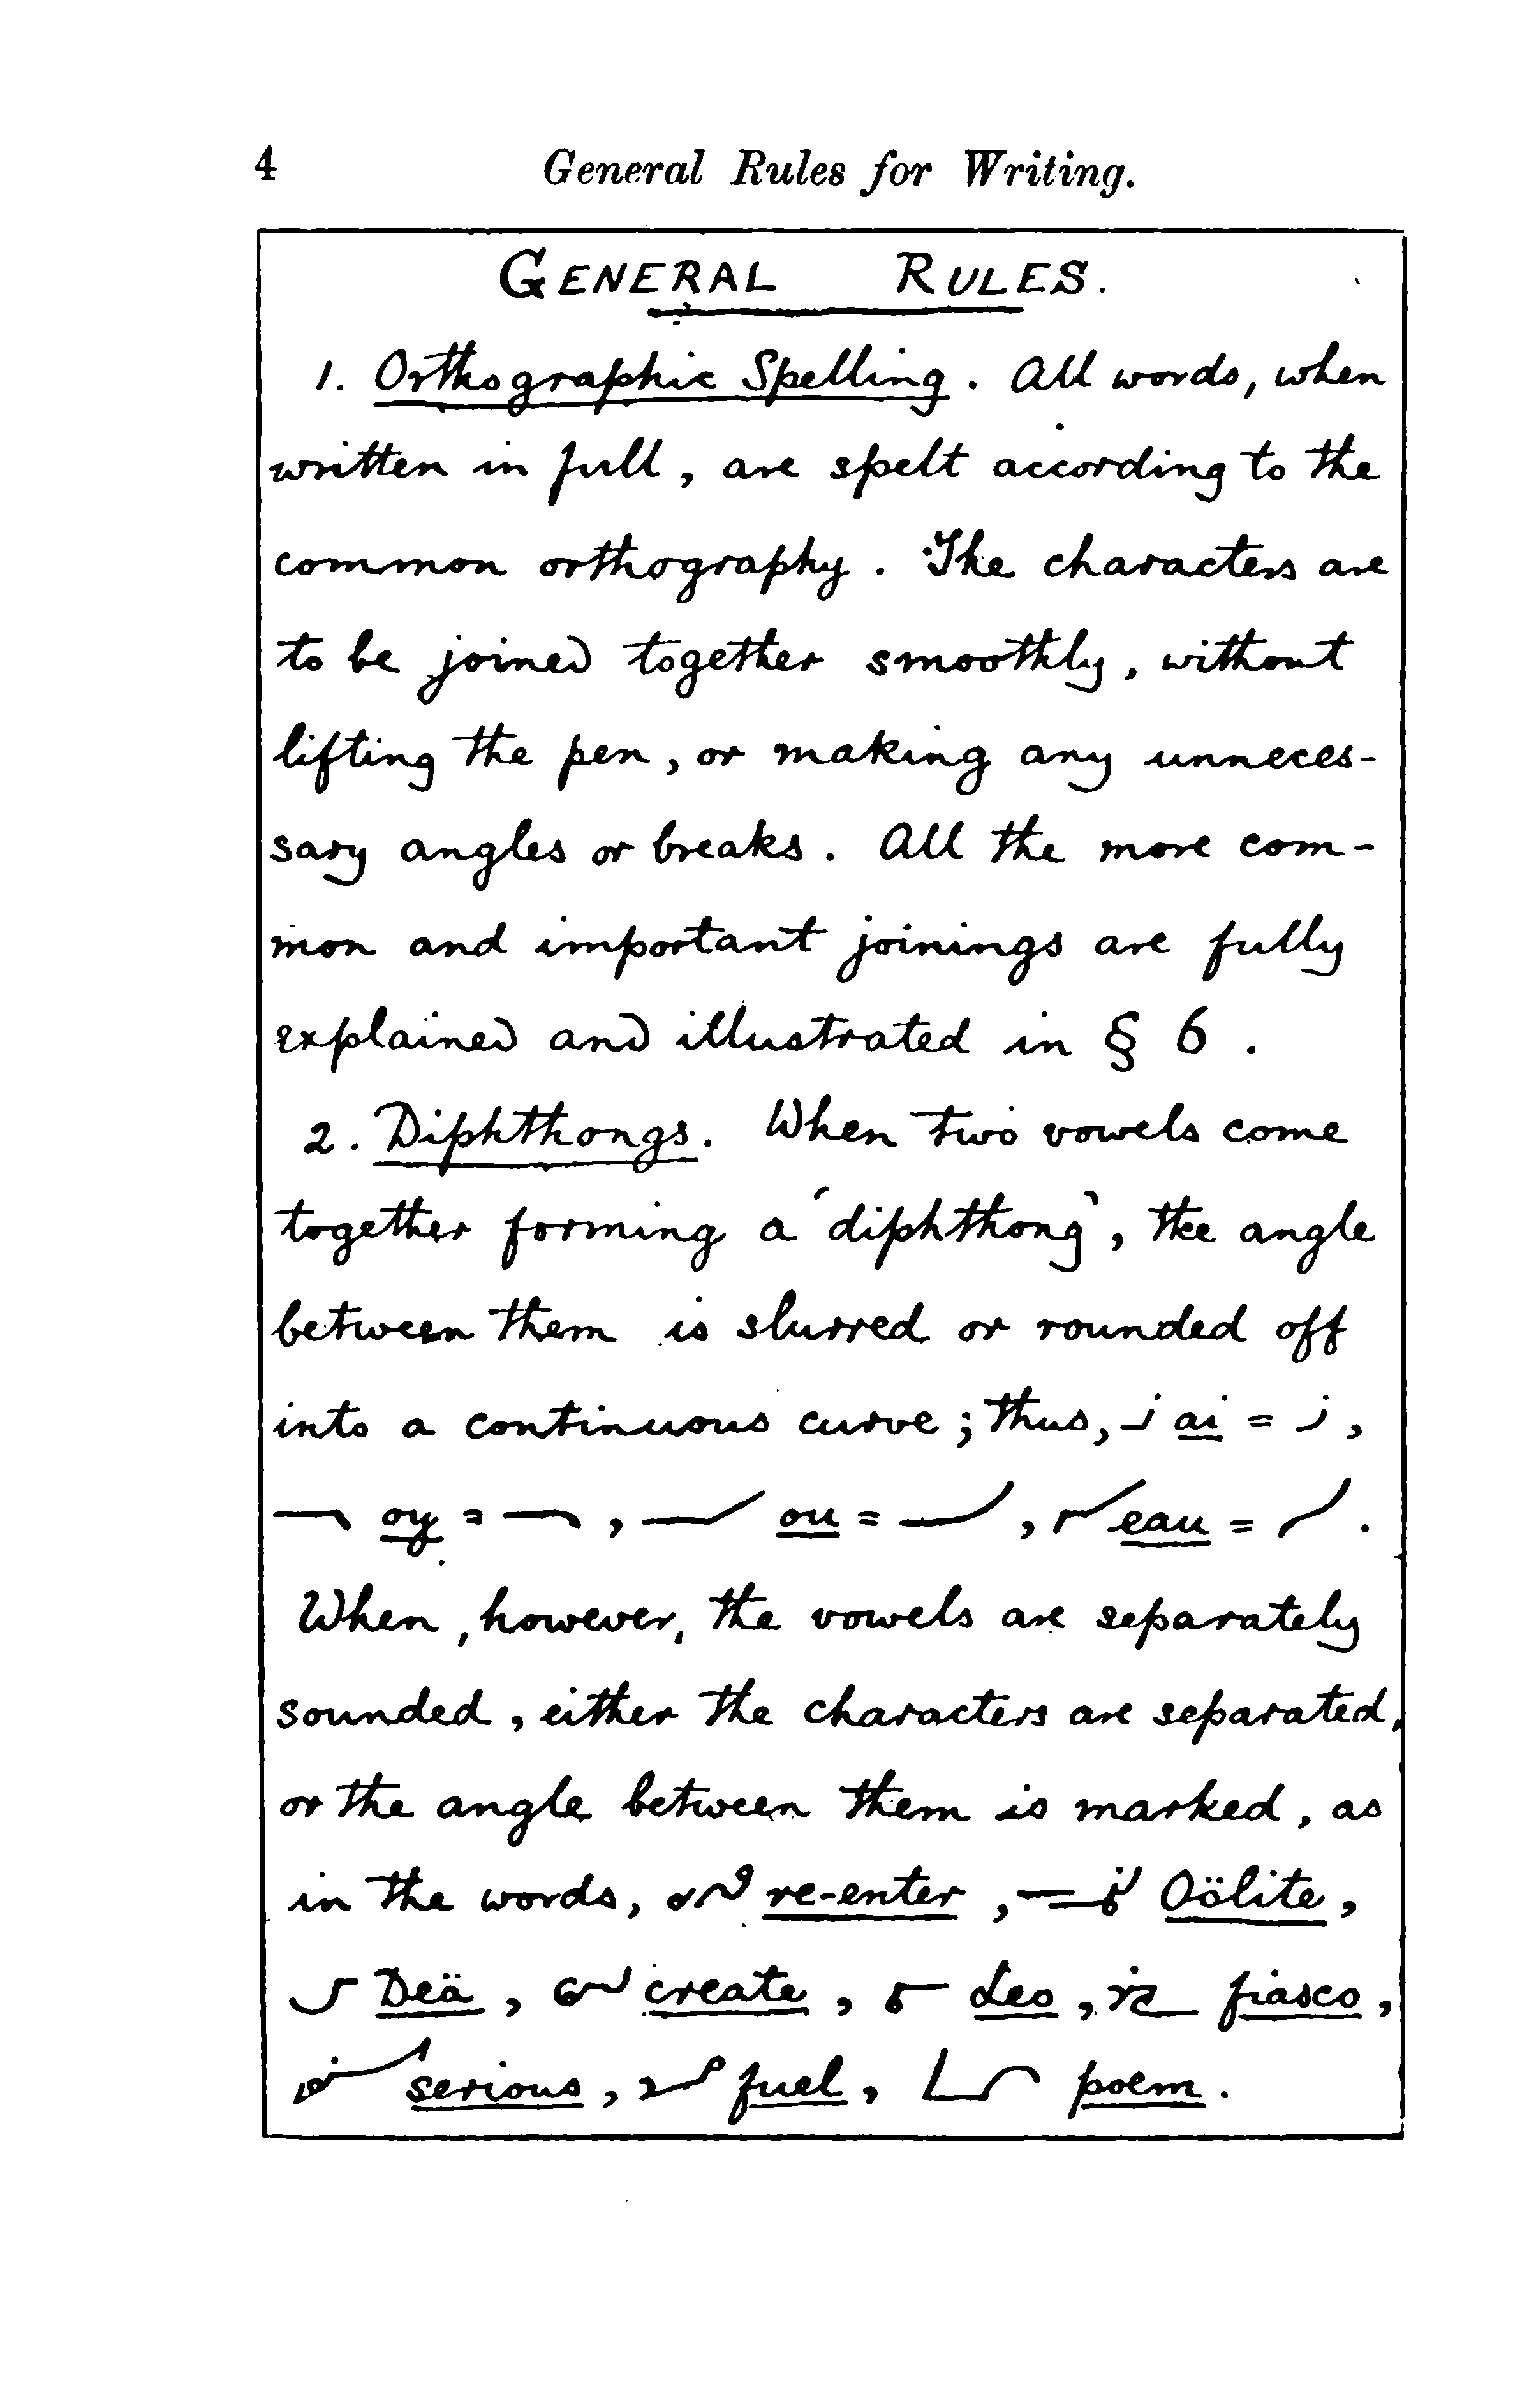 4 General Rules for Writing.
GENERAL RULES.
1. Orthographic Spelling. All words, when
written in full, are spelt according to the
common orthography. The characters are
to be joined together smoothly, without
lifting the pen, or making any unneces-
sary angles or breaks. All the more com-
mon and important joinings are fully
explained and illustrated in § 6.
2. Diphthongs. When two vowels come
together forming a 'diphthong', the angle
between them is slurred or rounded off
into a continuous curve; thus, ai = ,
oy = , ou = , eau = .
When, however, the vowels are separately
sounded, either the characters are separated,
or the angle between them is marked, as
in the words, re-enter, Oölite,
Deä, create, Leo, fiasco,
serious, fuel, poem.